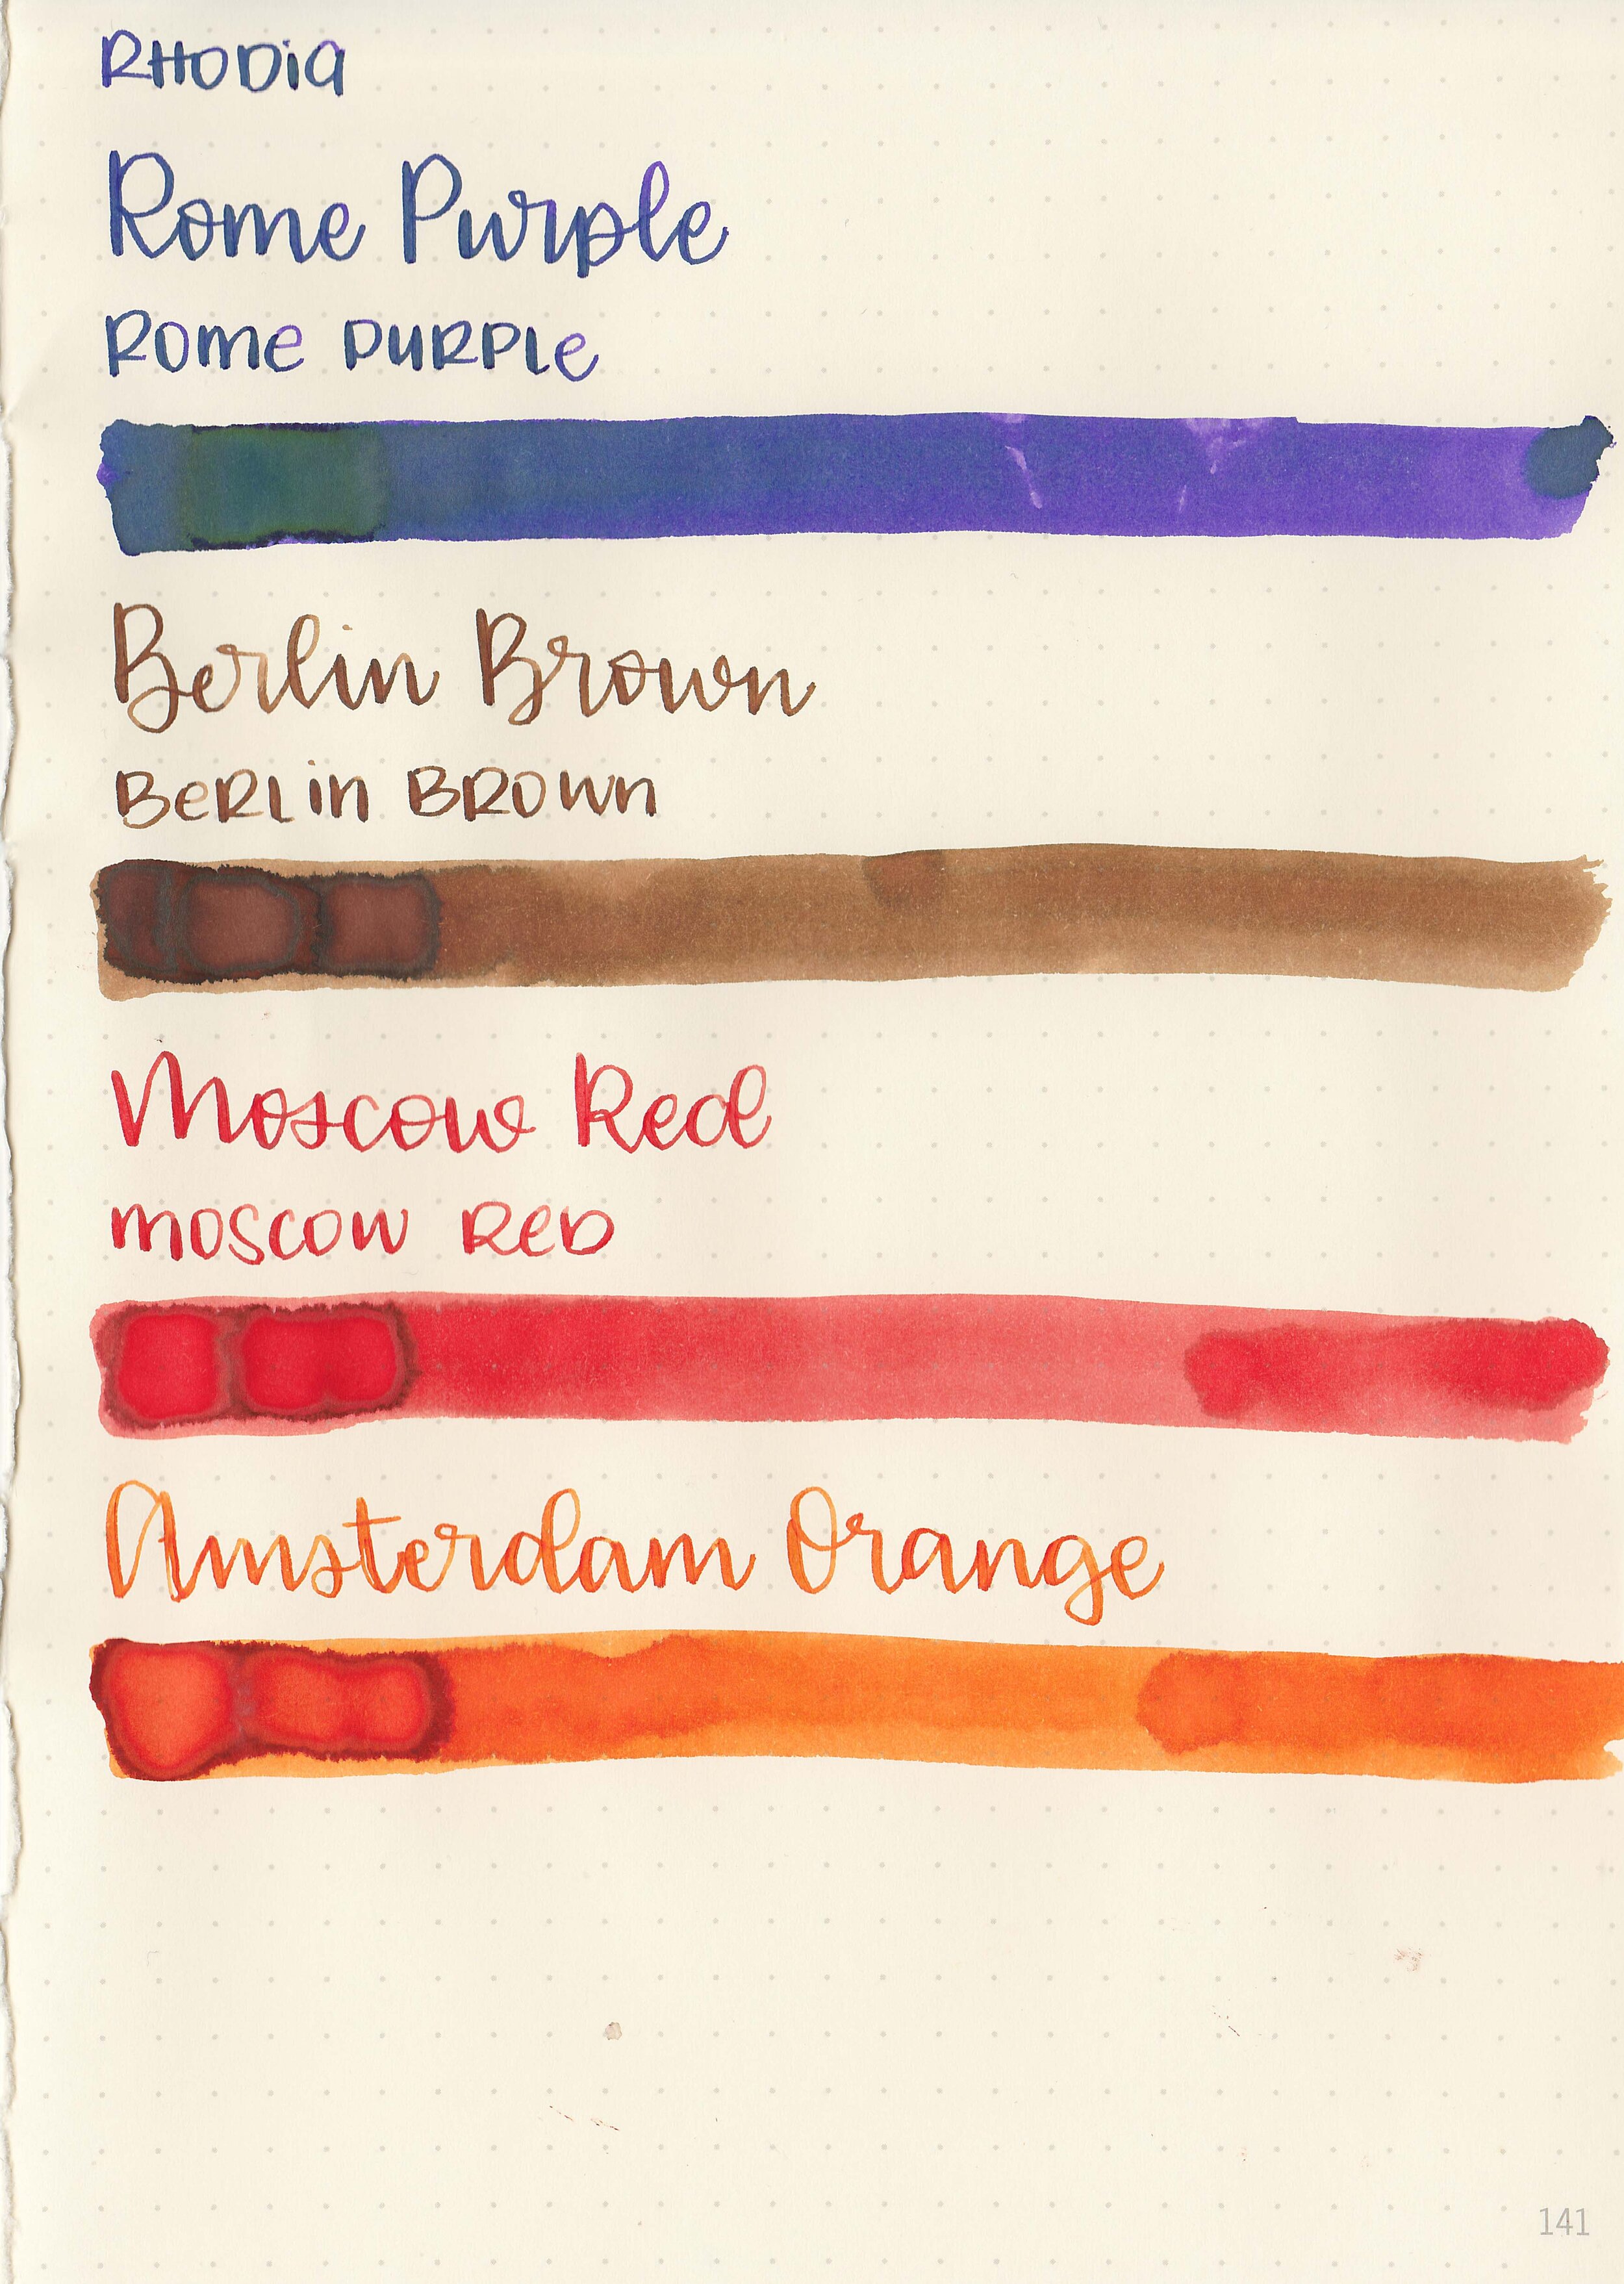 RHODia
Rome Purple
ROme PURPLe
Berlin Brown
BeRLin BROwn
Moscow Red
moscow ReD
Amsterdam Orange
141